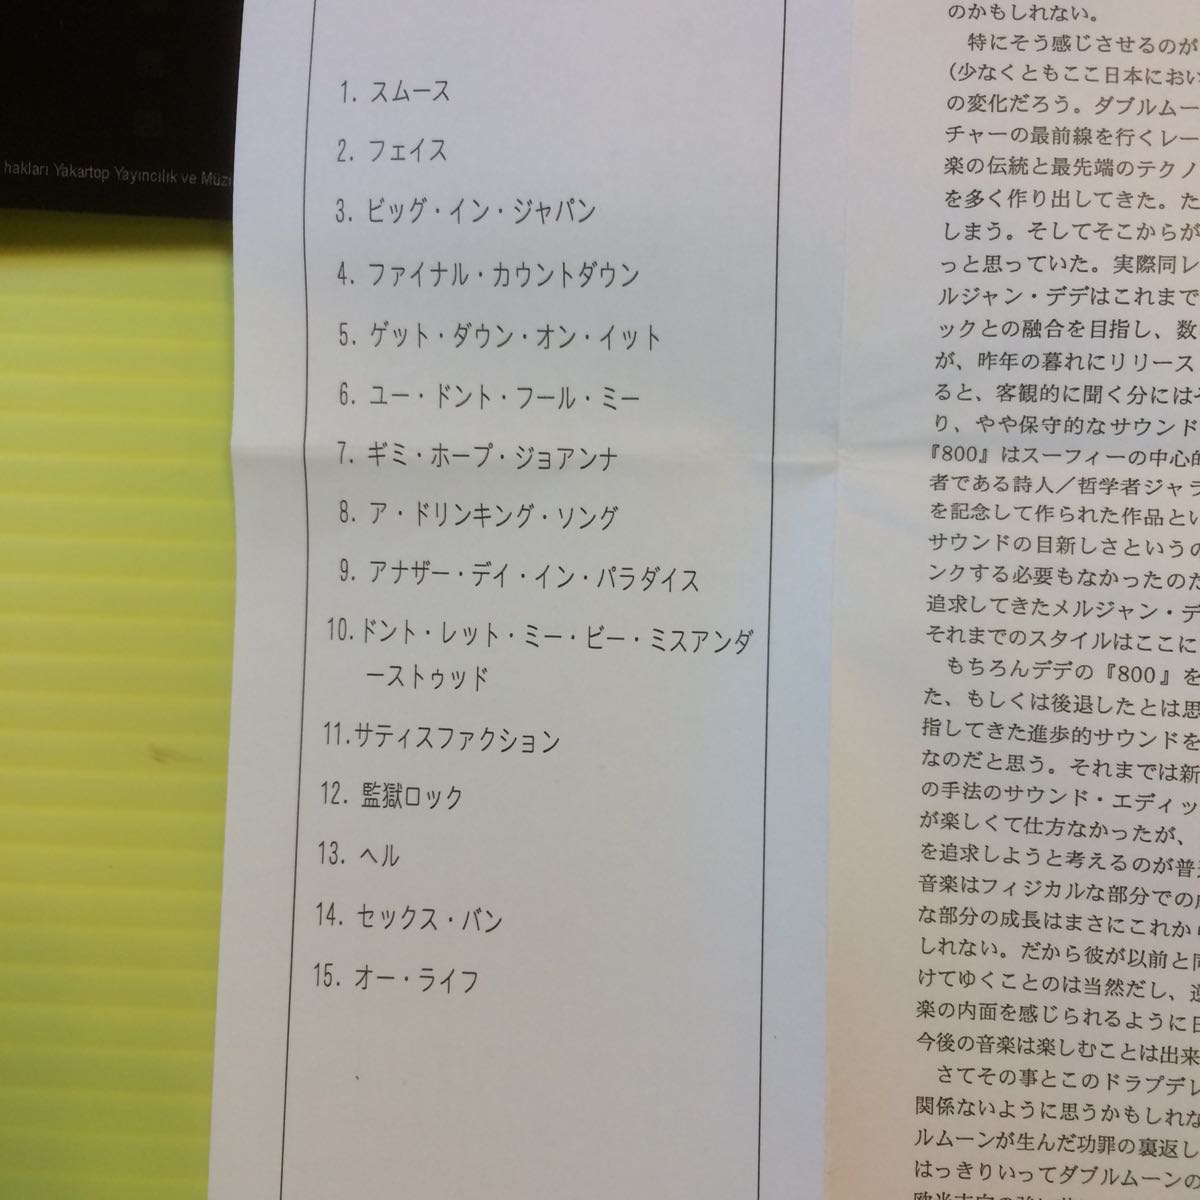 hakları Yakartop Yayıncılık ve Müzi
1. スムース
2. フェイス
3. ビッグ・イン・ジャパン
4. ファイナル・カウントダウン
5. ゲット・ダウン・オン・イット
6. ユー・ドント・フール・ミー
7. ギミ・ホープ・ジョアンナ
8. ア・ドリンキング・ソング
9. アナザー・デイ・イン・パラダイス
10.ドント・レット・ミー・ビー・ミスアンダ
ーストゥッド
11.サティスファクション
12. 監獄ロック
13. ヘル
14. セックス・バン
15. オー・ライフ
のかもしれない。
特にそう感じさせるのが
(少なくともここ日本におい
の変化だろう。ダブルムー
チャーの最前線を行くレー
楽の伝統と最先端のテクノ
を多く作り出してきた。た
しまう。そしてそこからが
っと思っていた。実際同レ
ルジャン・デデはこれまで
ックとの融合を目指し、数
が、昨年の暮れにリリース
ると、客観的に聞く分には
り、やや保守的なサウンド
『800』はスーフィーの中心的
者である詩人／哲学者ジャラ
を記念して作られた作品とい
サウンドの目新しさというの
ンクする必要もなかったのだ
追求してきたメルジャン・デ
それまでのスタイルはここに
もちろんデデの『800』を
た、もしくは後退したとは思
指してきた進歩的サウンドを
なのだと思う。それまでは新
の手法のサウンド・エディッ
が楽しくて仕方なかったが、
を追求しようと考えるのが普
音楽はフィジカルな部分での
な部分の成長はまさにこれから
しれない。だから彼が以前と同
けてゆくことのは当然だし、逆
楽の内面を感じられるように日
今後の音楽は楽しむことは出来
さてその事とこのドラプデレ
関係ないように思うかもしれな
ルムーンが生んだ功罪の裏返し
はっきりいってダブルムーンの